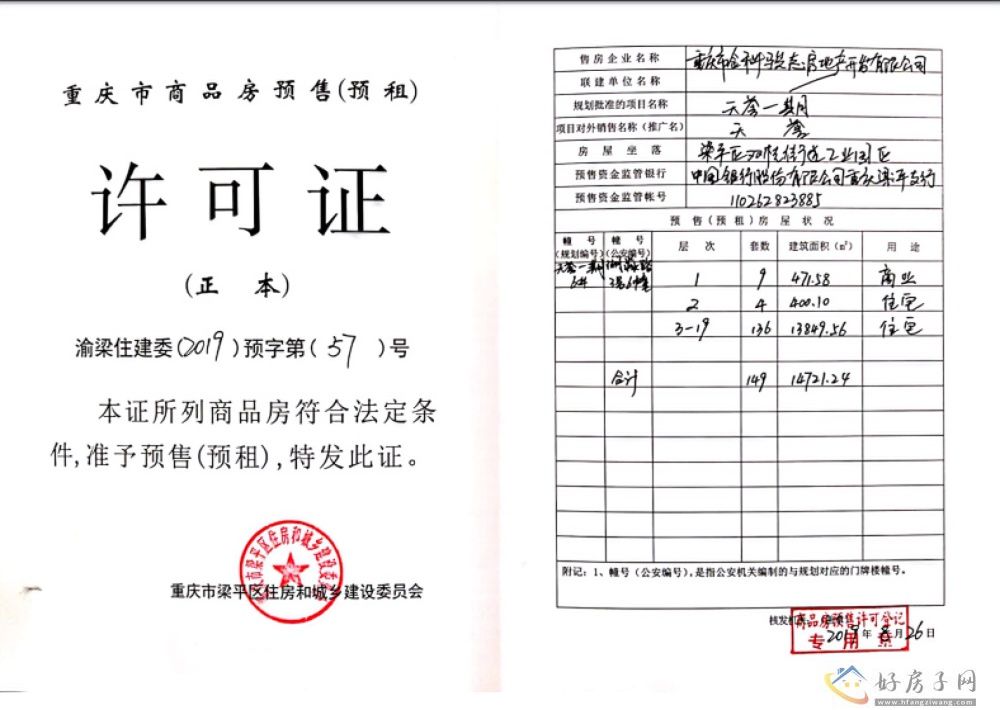 重庆市商品房预售(预租)
许可证
(正 本)
渝梁住建委(2019)预字第(57)号
本证所列商品房符合法定条
件,准予预售(预租),特发此证。
重庆市梁平区住房和城乡建设委员会
重庆市梁平区住房和城乡建设委员会
售房企业名称 重庆市金科骏志房地产开发有限公司
联建单位名称
规划批准的项目名称 天誉一期
项目对外销售名称(推广名) 天誉
房屋坐落 梁平区双桂街道工业园区
预售资金监管银行 中国银行股份有限公司重庆梁平支行
预售资金监管帐号 110262823885
预售(预租)房屋状况
幢号(规划编号) 幢号(公安编号) 层次 套数 建筑面积(㎡) 用途
天誉一期6# 3号6幢 1 9 471.58 商业
2 4 400.10 住宅
3-19 136 13849.56 住宅
合计 149 14721.24
附记:1、幢号(公安编号),是指公安机关编制的与规划对应的门牌楼幢号。
核发机关:
商品房预售许可登记
专用章
2019年8月26日
好房子网
www.hfangziwang.com